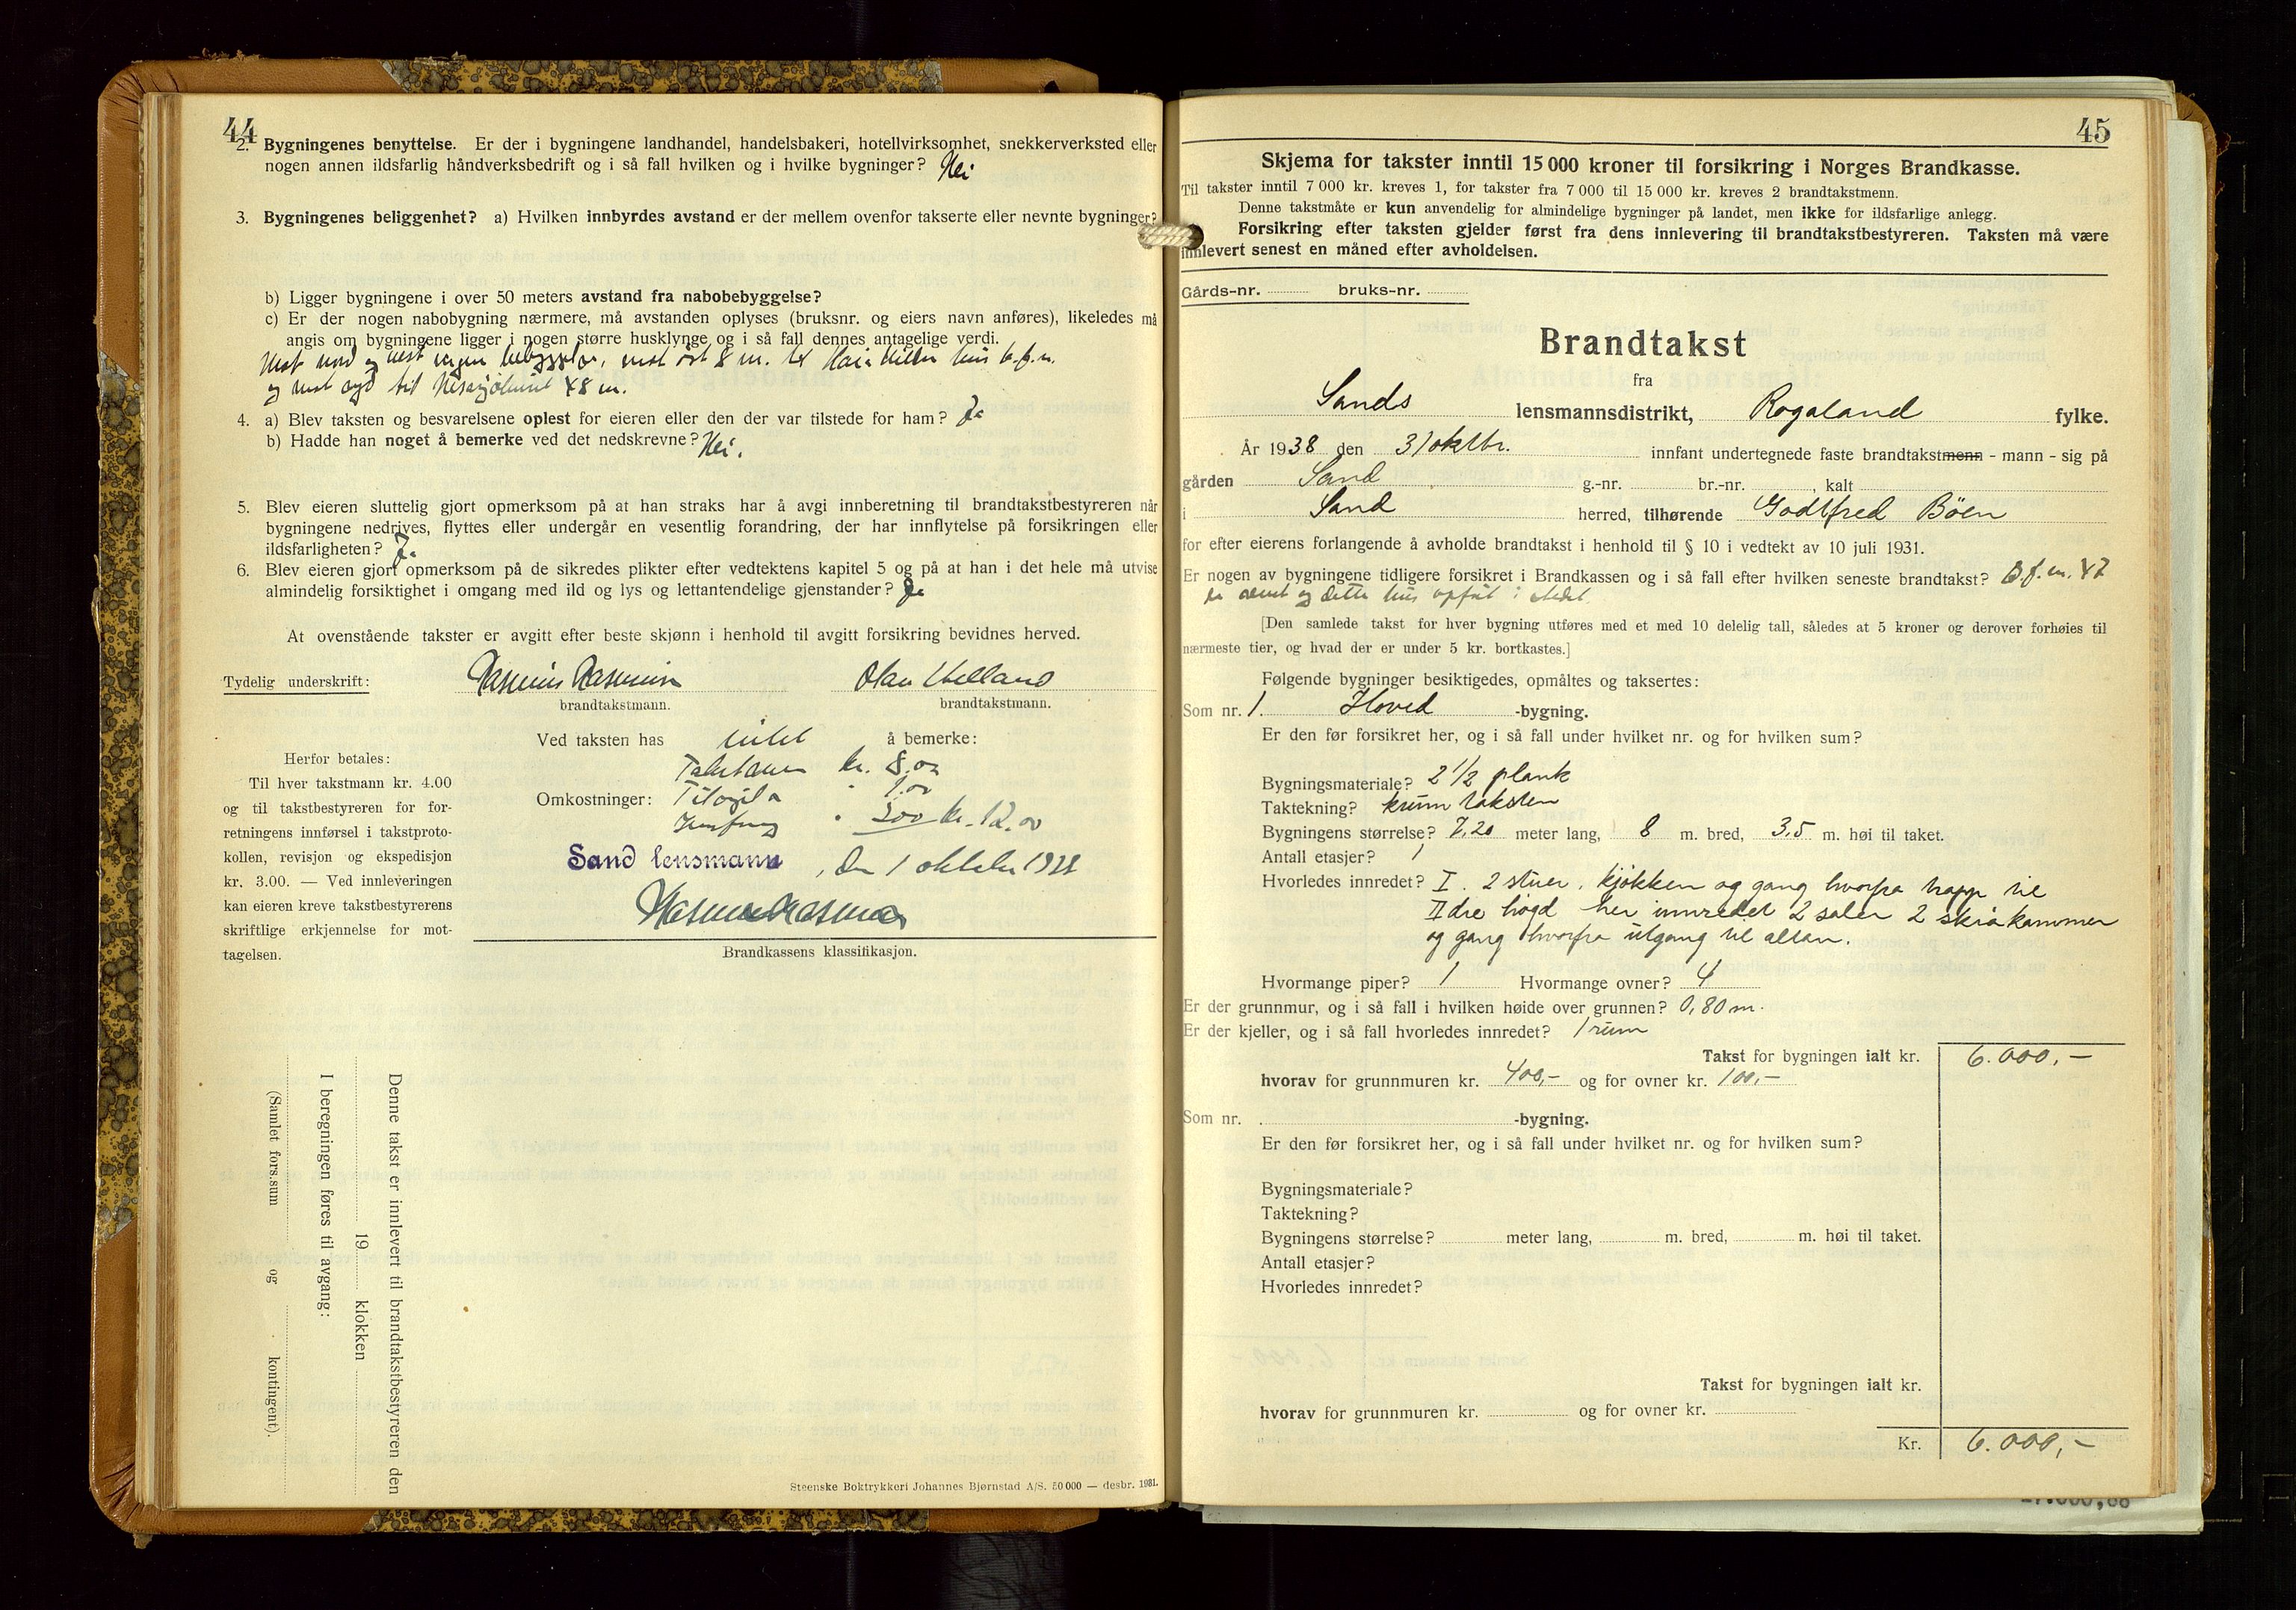 44
2. Bygningenes benyttelse. Er der i bygningene landhandel, handelsbakeri, hotellvirksomhet, snekkerverksted eller
nogen annen ildsfarlig håndverksbedrift og i så fall hvilken og i hvilke bygninger? Nei
3. Bygningenes beliggenhet? a) Hvilken innbyrdes avstand er der mellem ovenfor takserte eller nevnte bygninger?
b) Ligger bygningene i over 50 meters avstand fra nabobebyggelse?
c) Er der nogen nabobygning nærmere, må avstanden oplyses (bruksnr. og eiers navn anføres), likeledes må
angis om bygningene ligger i nogen større husklynge og i så fall dennes antagelige verdi.
Mot nord og vest ingen bebyggelse, mot øst 8 m. til hus b.f.n.
og mot syd til 48 m.
4. a) Blev taksten og besvarelsene oplest for eieren eller den der var tilstede for ham? Ja
b) Hadde han noget å bemerke ved det nedskrevne? Nei.
5. Blev eieren sluttelig gjort opmerksom på at han straks har å avgi innberetning til brandtakstbestyreren når
bygningene nedrives, flyttes eller undergår en vesentlig forandring, der har innflytelse på forsikringen eller
ildsfarligheten? Ja
6. Blev eieren gjort opmerksom på de sikredes plikter efter vedtektens kapitel 5 og på at han i det hele må utvise
almindelig forsiktighet i omgang med ild og lys og lettantendelige gjenstander? Ja
At ovenstående takster er avgitt efter beste skjønn i henhold til avgitt forsikring bevidnes herved.
Tydelig underskrift: Rasmus Rasmussen Olav Helland
brandtakstmann. brandtakstmann.
Ved taksten has intet å bemerke:
Herfor betales:
Til hver takstmann kr. 4.00
og til takstbestyreren for for-
retningens innførsel i takstproto-
kollen, revisjon og ekspedisjon
kr. 3.00. — Ved innleveringen
kan eieren kreve takstbestyrerens
skriftlige erkjennelse for mot-
tagelsen.
kr. 8.00
Omkostninger: " 1.00
" 3.00 kr. 12.00
Sand lensmann, den 1 oktober 1938
Rasmus Rasmussen
Brandkassens klassifikasjon.
Denne takst er innlevert til brandtakstbestyreren den
19 klokken
I beregningen føres til avgang:
(Samlet fors.sum og kontingent).
Steenske Boktrykkeri Johannes Bjørnstad A/S. 50 000 — desbr. 1931.
45
Skjema for takster inntil 15 000 kroner til forsikring i Norges Brandkasse.
Til takster inntil 7 000 kr. kreves 1, for takster fra 7 000 til 15 000 kr. kreves 2 brandtakstmenn.
Denne takstmåte er kun anvendelig for almindelige bygninger på landet, men ikke for ildsfarlige anlegg.
Forsikring efter taksten gjelder først fra dens innlevering til brandtakstbestyreren. Taksten må være
innlevert senest en måned efter avholdelsen.
Gårds-nr. bruks-nr.
Brandtakst
fra
Sands lensmannsdistrikt, Rogaland fylke.
År 1938 den 31 oktbr. innfant undertegnede faste brandtakstmenn - mann - sig på
gården Sand g.-nr. br.-nr. , kalt
i Sand herred, tilhørende Godtfred Böen
for efter eierens forlangende å avholde brandtakst i henhold til § 10 i vedtekt av 10 juli 1931.
Er nogen av bygningene tidligere forsikret i Brandkassen og i så fall efter hvilken seneste brandtakst? B.f.n. 47
er revet og dette hus opført i stedet
[Den samlede takst for hver bygning utføres med et med 10 delelig tall, således at 5 kroner og derover forhøies til
nærmeste tier, og hvad der er under 5 kr. bortkastes.]
Følgende bygninger besiktigedes, opmåltes og taksertes:
Som nr. 1. Hoved -bygning.
Er den før forsikret her, og i så fall under hvilket nr. og for hvilken sum?
Bygningsmateriale? 2 1/2 plank
Taktekning? krum taksten
Bygningens størrelse? 7,20 meter lang, 8 m. bred, 3,5 m. høi til taket.
Antall etasjer? 1
Hvorledes innredet? I. 2 stuer, kjökken og gang hvorfra trapp til
II dre högd her innredet 2 saler 2 skråkammer
og gang hvorfra utgang til altan.
Hvormange piper? 1 Hvormange ovner? 4
Er der grunnmur, og i så fall i hvilken høide over grunnen? 0,80 m.
Er der kjeller, og i så fall hvorledes innredet? 1 rum
Takst for bygningen ialt kr. 6.000,-
hvorav for grunnmuren kr. 400,- og for ovner kr. 100,-
Som nr. -bygning.
Er den før forsikret her, og i så fall under hvilket nr. og for hvilken sum?
Bygningsmateriale?
Taktekning?
Bygningens størrelse? meter lang, m. bred, m. høi til taket.
Antall etasjer?
Hvorledes innredet?
Takst for bygningen ialt kr.
hvorav for grunnmuren kr. og for ovner kr.
Kr. 6.000,-